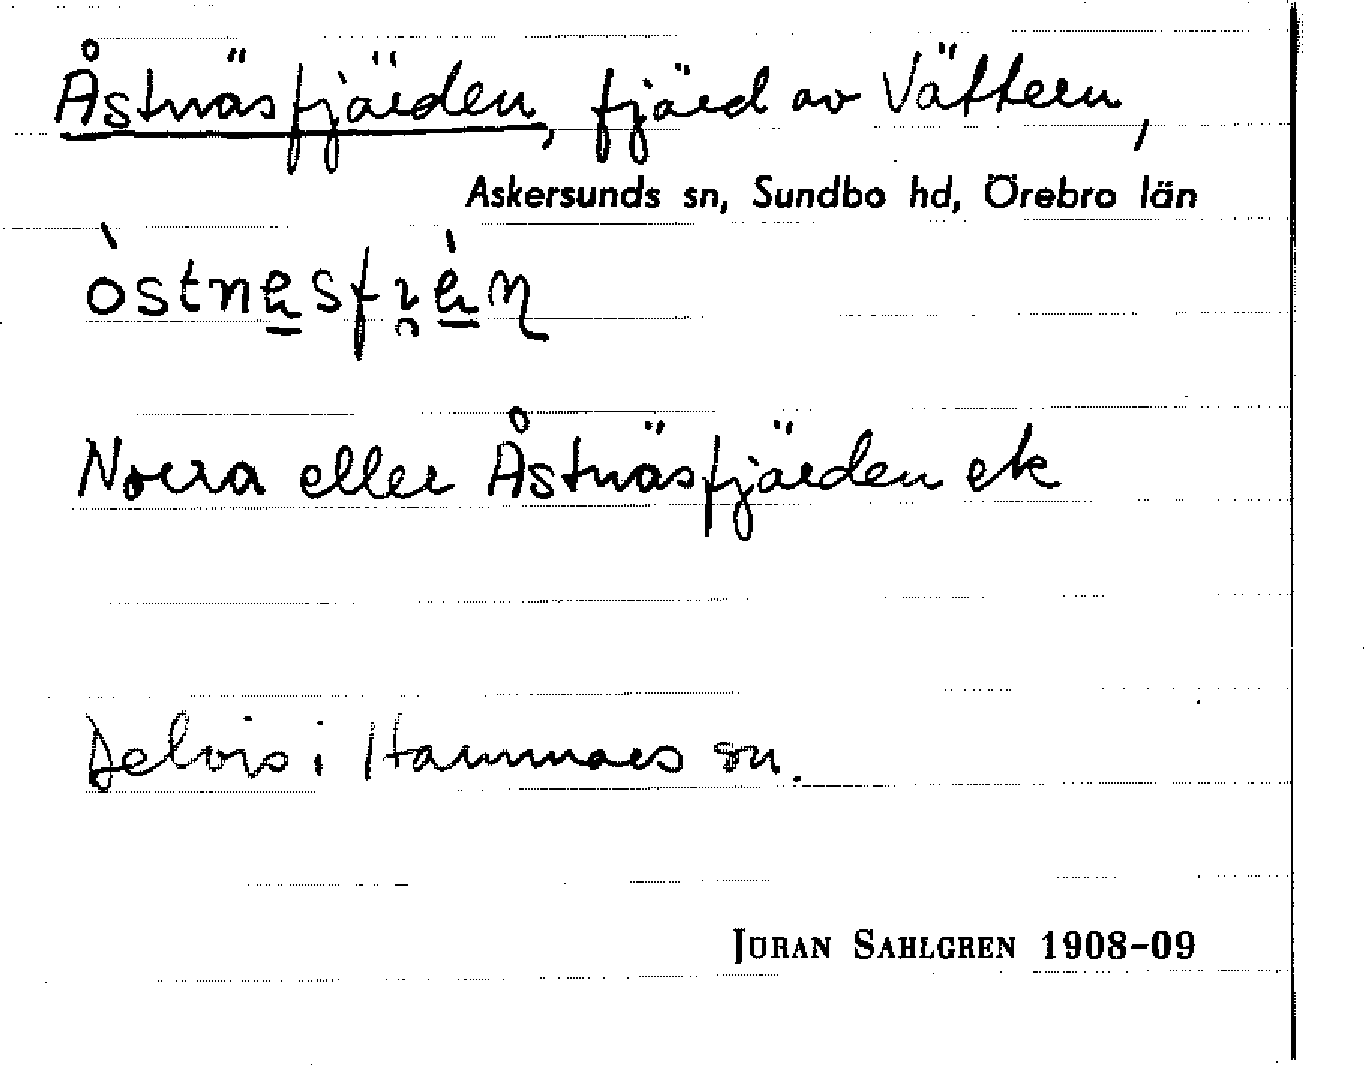 Åstnäsfjärden, fjärd av Vättern,
Askersunds sn, Sundbo hd, Örebro län
Norra eller Åstnäsfjärden ek
Delvis i Hammars sn.
JÖRAN SAHLGREN 1908-09